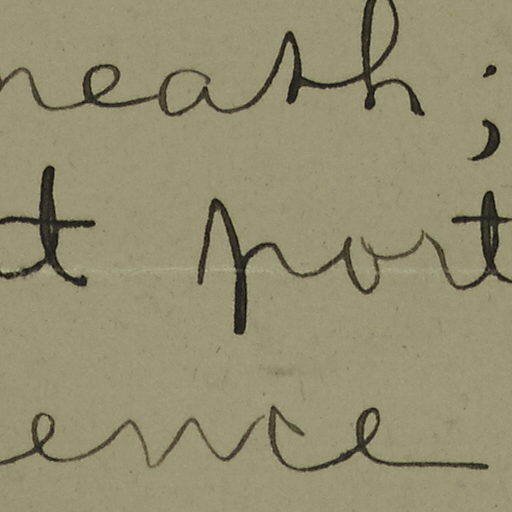 neath;
t port
ence